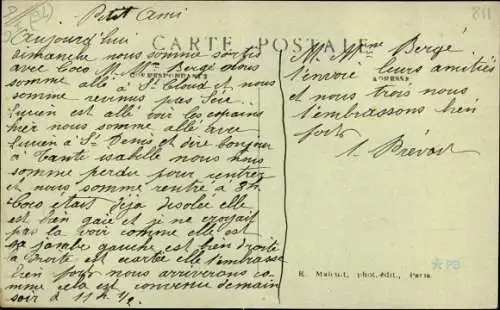 Petit Ami
811
CARTE POSTALE
CORRESPONDANCE
ADRESSE
Aujourd'hui
dimanche nous somme sortis
avec Coco M. Mme Bergé nous
somme allé à St Cloud et nous
somme revenus pas
Lucien est allé voir les copains
hier nous somme allé avec
Lucien à St Denis et dire bonjour
à Tante isabelle nous nous
somme perdu pour rentrez
et nous somme rentré à 8h
Coco était déja desolée elle
est bien gaie et je ne croyait
pas la voir comme elle est
sa jambe gauche est bien droite
la droite est ecartée elle l'embrasse
bien fort nous arriverons co-
mme cela est convenu demain
soir à 11h ½
M. Mme Bergé
t'envoie leurs amitiés
et nous trois nous
t'embrassons bien
fort
Prévost
phot.-édit., Paris.
*PB